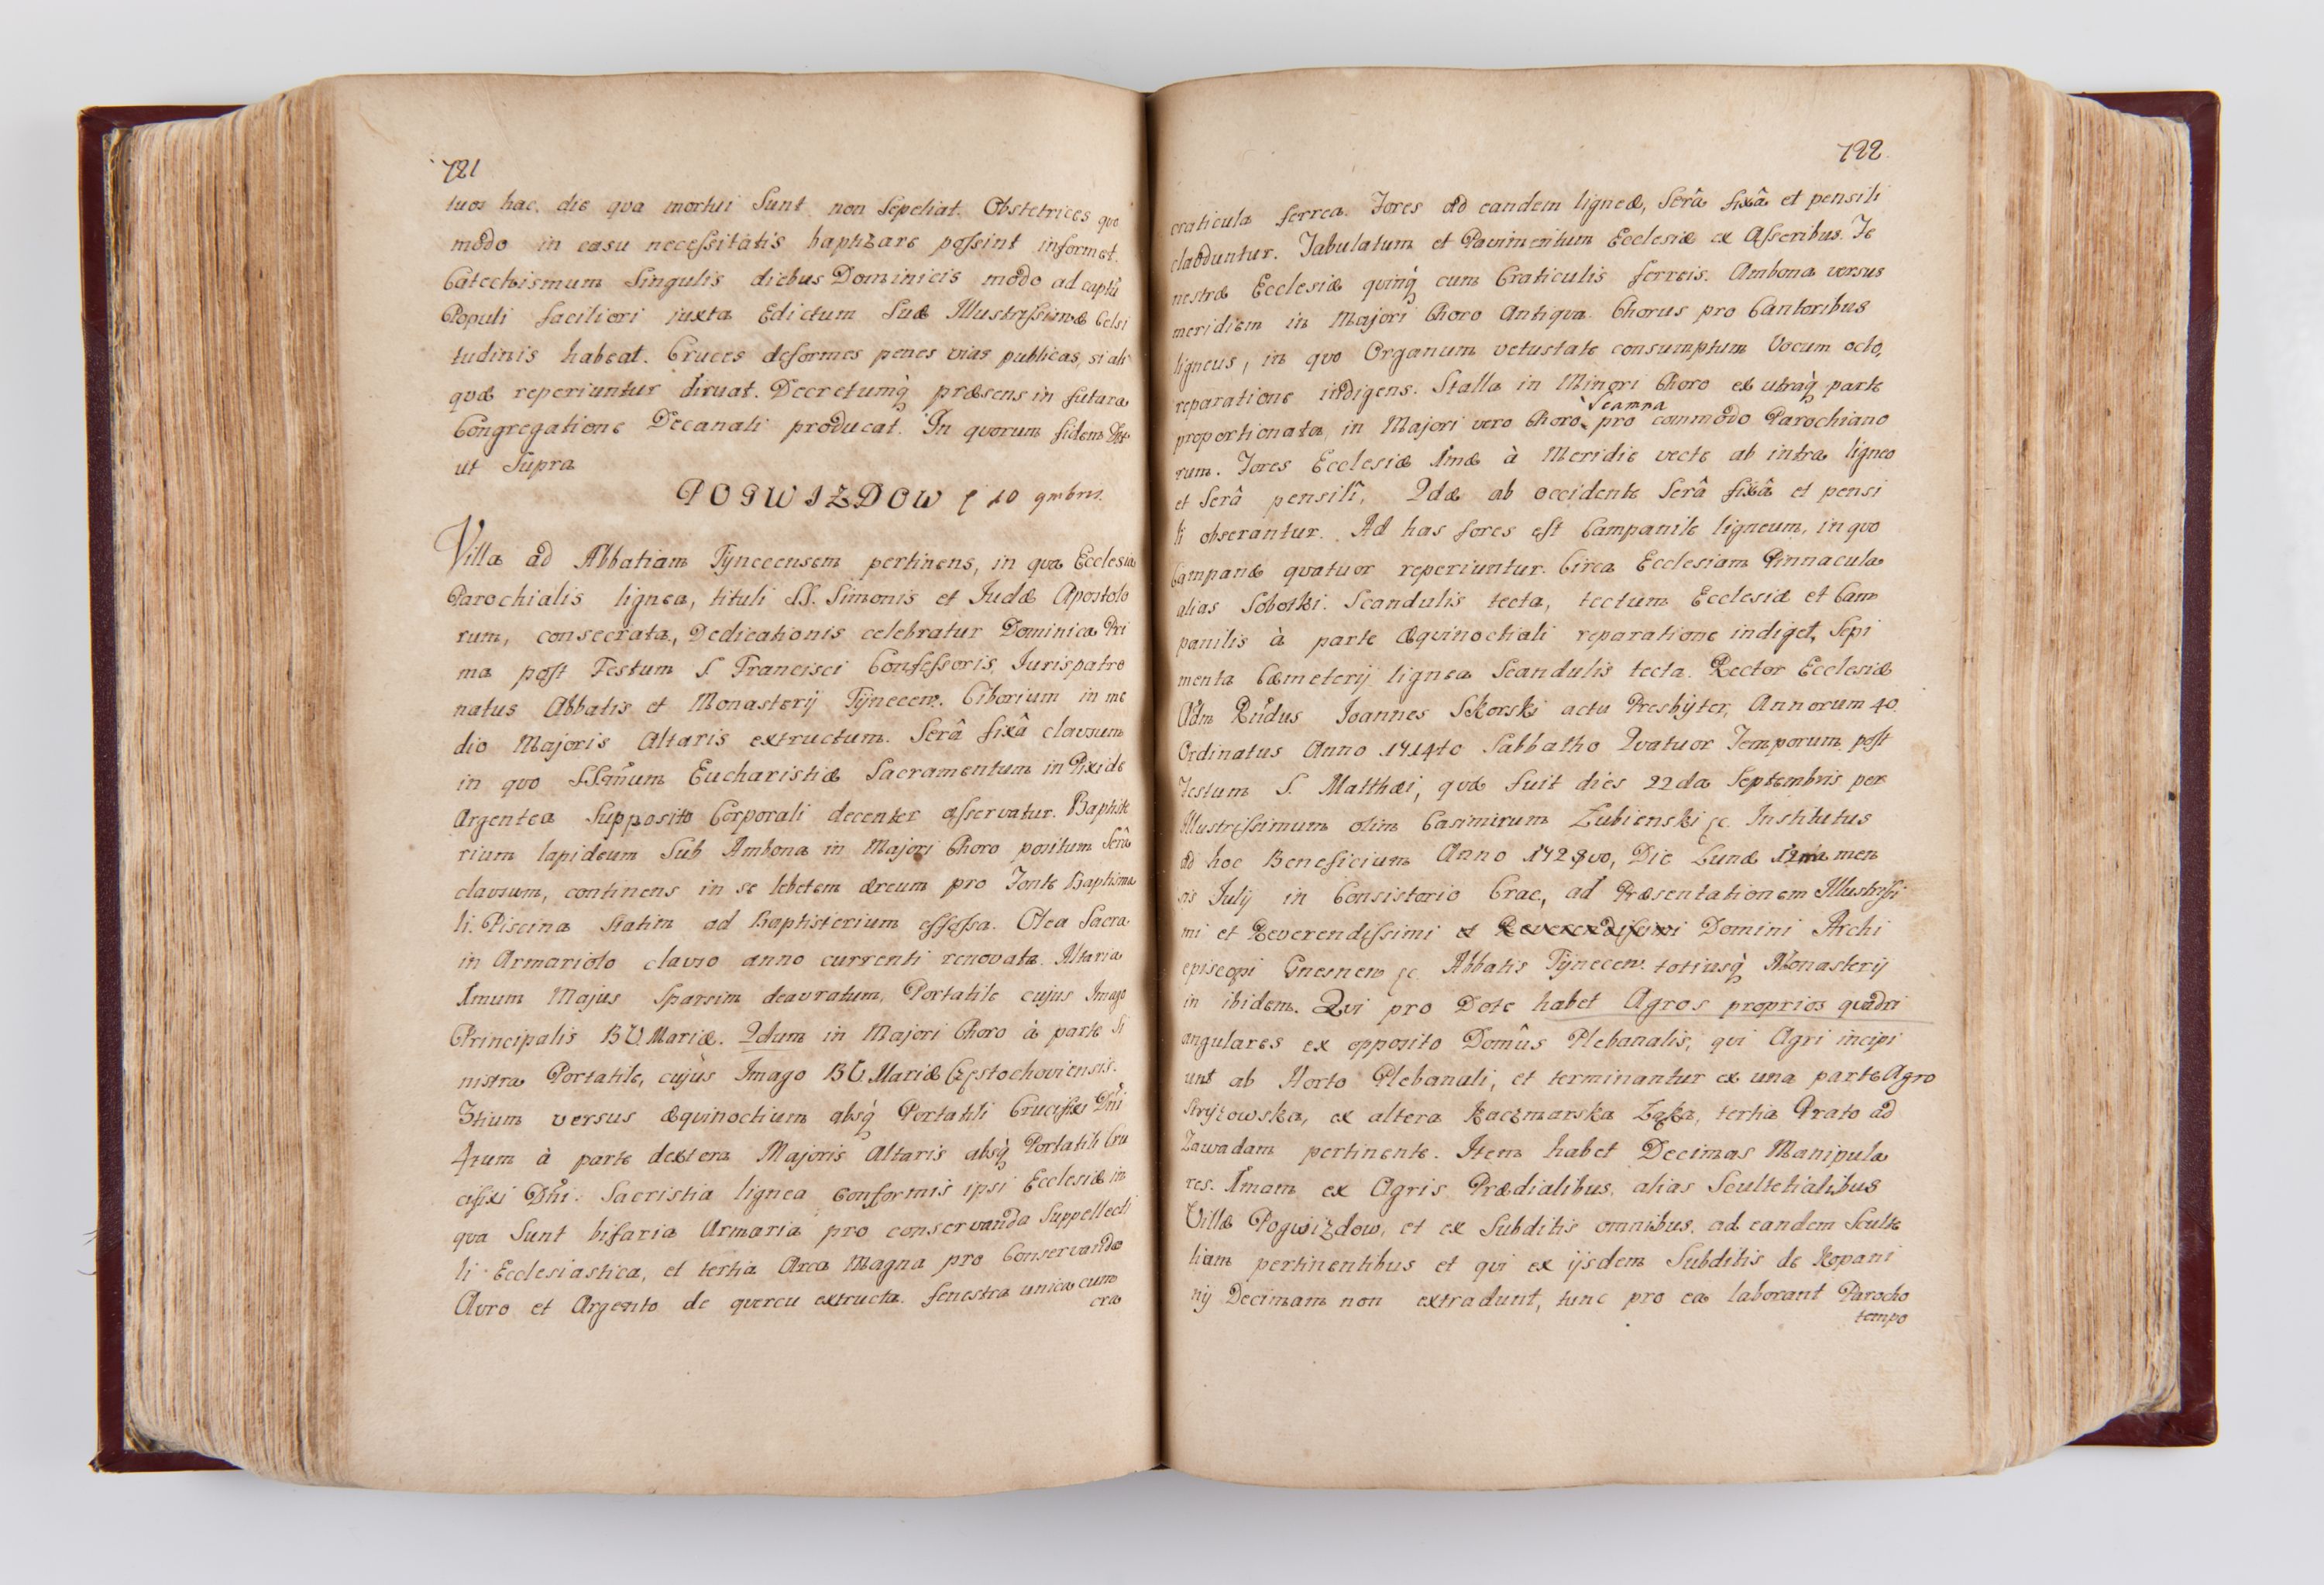 721
tuos hac die qva mortui Sunt non Sepeliat. Obstetrices qvo
modo in casu necessitatis baptizare possint informet.
Catechismum Singulis diebus Dominicis modo ad captũ
Populi faciliori juxta Edictum Suæ Illustrissimæ Celsi
tudinis habeat. Cruces deformes penes vias publicas, si ali
qvæ reperiuntur diruat. Decretumq̃ præsens in futura
Congregatione Decanali producat. In qvorum fidem
ut Supra
POGWIZDOW 10 9mbris.
Villa ad Abbatiam Tynecensem pertinens, in qva Ecclesia
Parochialis lignea, tituli SS. Simonis et Judæ Apostolo
rum, consecrata, Dedicationis celebratur Dominica Pri
ma post Festum S. Francisci Confessoris Jurispatro
natus Abbatis et Monasterij Tynecen. Ciborium in me
dio Majoris Altaris extructum. Serâ fixâ clausum
in qvo SSm̃um Eucharistiæ Sacramentum in Pixide
Argentea Supposito Corporali decenter asservatur. Baptiste
rium lapideum Sub Ambona in Majori Choro positum Serâ
clausum, continens in se lebetem æreum pro Fonte Baptisma
li. Piscina statim ad Baptisterium effossa. Olea Sacra
in Armariolo clauso anno currenti renovata. Altaria
1mum Majus Sparsim deauratum, Portatile cujus Imago
Principalis BV Mariæ. 2dum in Majori Choro à parte Si
nistra Portatile, cujus Imago BV Mariæ Częstochoviensis.
3tium versus æqvinoctium absq̃ Portatili Crucifixi Dñi
4rum à parte dextera Majoris Altaris absq̃ Portatili Cru
cifixi Dñi. Sacristia lignea conformis ipsi Ecclesiæ in
qva Sunt bifaria Armaria pro conservanda Suppellecti
li Ecclesiastica, et tertia Arca Magna pro Conservando
Auro et Argento de qvercu extructa. fenestra unica cum
cra
722
craticula ferrea. Fores ad eandem ligneæ, Serâ fixâ et pensili
clauduntur. Tabulatum et Pavimentum Ecclesiæ ex Asseribus. Fe
nestræ Ecclesiæ qvinq̃ cum Craticulis ferreis. Ambona versus
meridiem in Majori Choro Antiqva. Chorus pro Cantoribus
ligneus, in qvo Organum vetustate consumptum Vocum octo,
reparatione indigens. Stalla in Minori Choro ex utraq̃ parte
Scamna
proportionata, in Majori vero Choro pro commodo Parochiano
rum. Fores Ecclesiæ 1mæ à Meridie vecte ab intra ligneo
et Serâ pensili, 2dæ ab occidente Serâ fixâ et pensi
li obserantur. Ad has fores est Campanile ligneum, in qvo
Campanæ qvatuor reperiuntur. Circa Ecclesiam Pinnacula
alias Sobotki. Scandulis tecta, tectum Ecclesiæ et Cam
panilis à parte æqvinoctiali reparatione indiget, Sepi
menta Cæmeterij lignea Scandulis tecta. Rector Ecclesiæ
Adm Rñdus Joannes Skorski actu Presbyter, Annorum 40.
Ordinatus Anno 1714to Sabbatho Qvatuor Temporum post
Festum S. Matthæi, qvæ fuit dies 22da Septembris per
Illustrissimum olim Casimirum Łubienski &c. Institutus
ad hoc Beneficium Anno 1728vo, Die Lunæ 12ma men
sis Julij in Consistorio Crac., ad Præsentationem Illustrissi
mi et Reverendissimi et Reverendissimi Domini Archi
episcopi Gnesnen &c Abbatis Tynecen. totiusq̃ Monasterij
in ibidem. Qvi pro Dote habet Agros proprios qvadri
angulares ex opposito Domûs Plebanalis, qvi Agri incipi
unt ab Horto Plebanali, et terminantur ex una parte Agro
Stryzowska, ex altera Kaczmarska Łąka, tertia Prato ad
Zawadam pertinente. Item habet Decimas Manipula
res. 1mam ex Agris Prædialibus, alias Scultetialibus
Villæ Pogwizdow, et ex Subditis omnibus ad eandem Sculte
tiam pertinentibus et qvi ex ijsdem Subditis de Kopani
nij Decimam non extradunt, tunc pro ea laborant Parocho
tempo